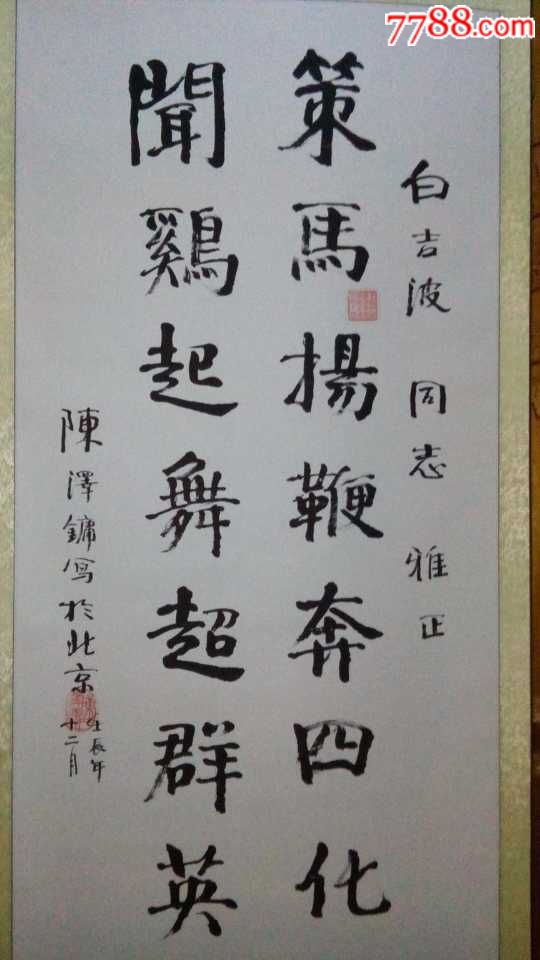 7788.com
白吉波 同志 雅正
策馬揚鞭奔四化
聞鷄起舞超群英
陳澤鏞寫於北京
壬辰年
十二月